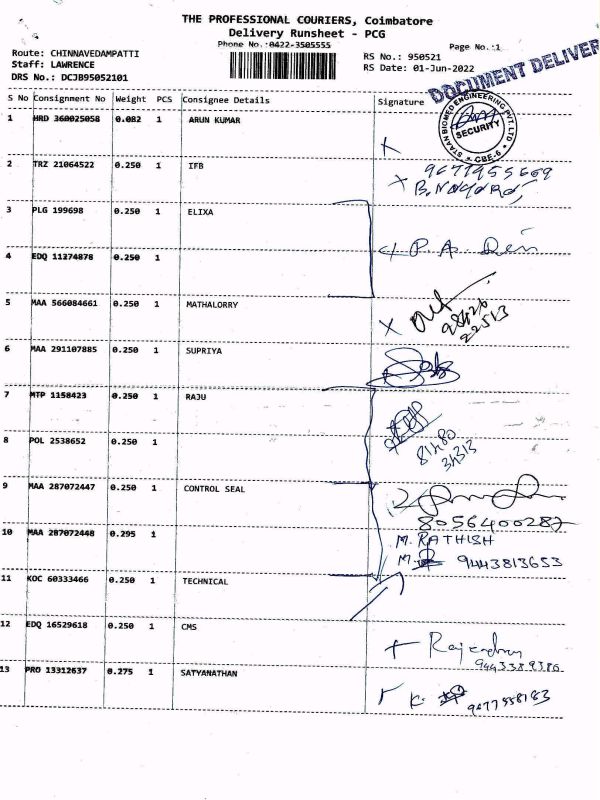 THE PROFESSIONAL COURIERS, Coimbatore
Delivery Runsheet - PCG
Phone No.:0422-3505555
Page No.:1
Route: CHINNAVEDAMPATTI
Staff: LAWRENCE
DRS No.: DCJB95052101
RS No.: 950521
RS Date: 01-Jun-2022
DOCUMENT DELIVER
S No Consignment No Weight PCS Consignee Details Signature
BIOMED ENGINEERING PVT. LTD
SECURITY
CBE-6
1 HRD 360025058 0.082 1 ARUN KUMAR
2 TRZ 21064522 0.250 1 IFB
3 PLG 199698 0.250 1 ELIXA
P. A.
4 EDQ 11274878 0.250 1
5 MAA 566084661 0.250 1 MATHALORRY
98426
22513
6 MAA 291107885 0.250 1 SUPRIYA
7 MTP 1158423 0.250 1 RAJU
8 POL 2538652 0.250 1
81480
34313
9 MAA 287072447 0.250 1 CONTROL SEAL
8056400287
10 MAA 287072448 0.295 1
M. RATHISH
M. 9443813653
11 KOC 60333466 0.250 1 TECHNICAL
12 EDQ 16529618 0.250 1 CMS
9443389386
13 PRO 13312637 0.275 1 SATYANATHAN
K.
9677558183